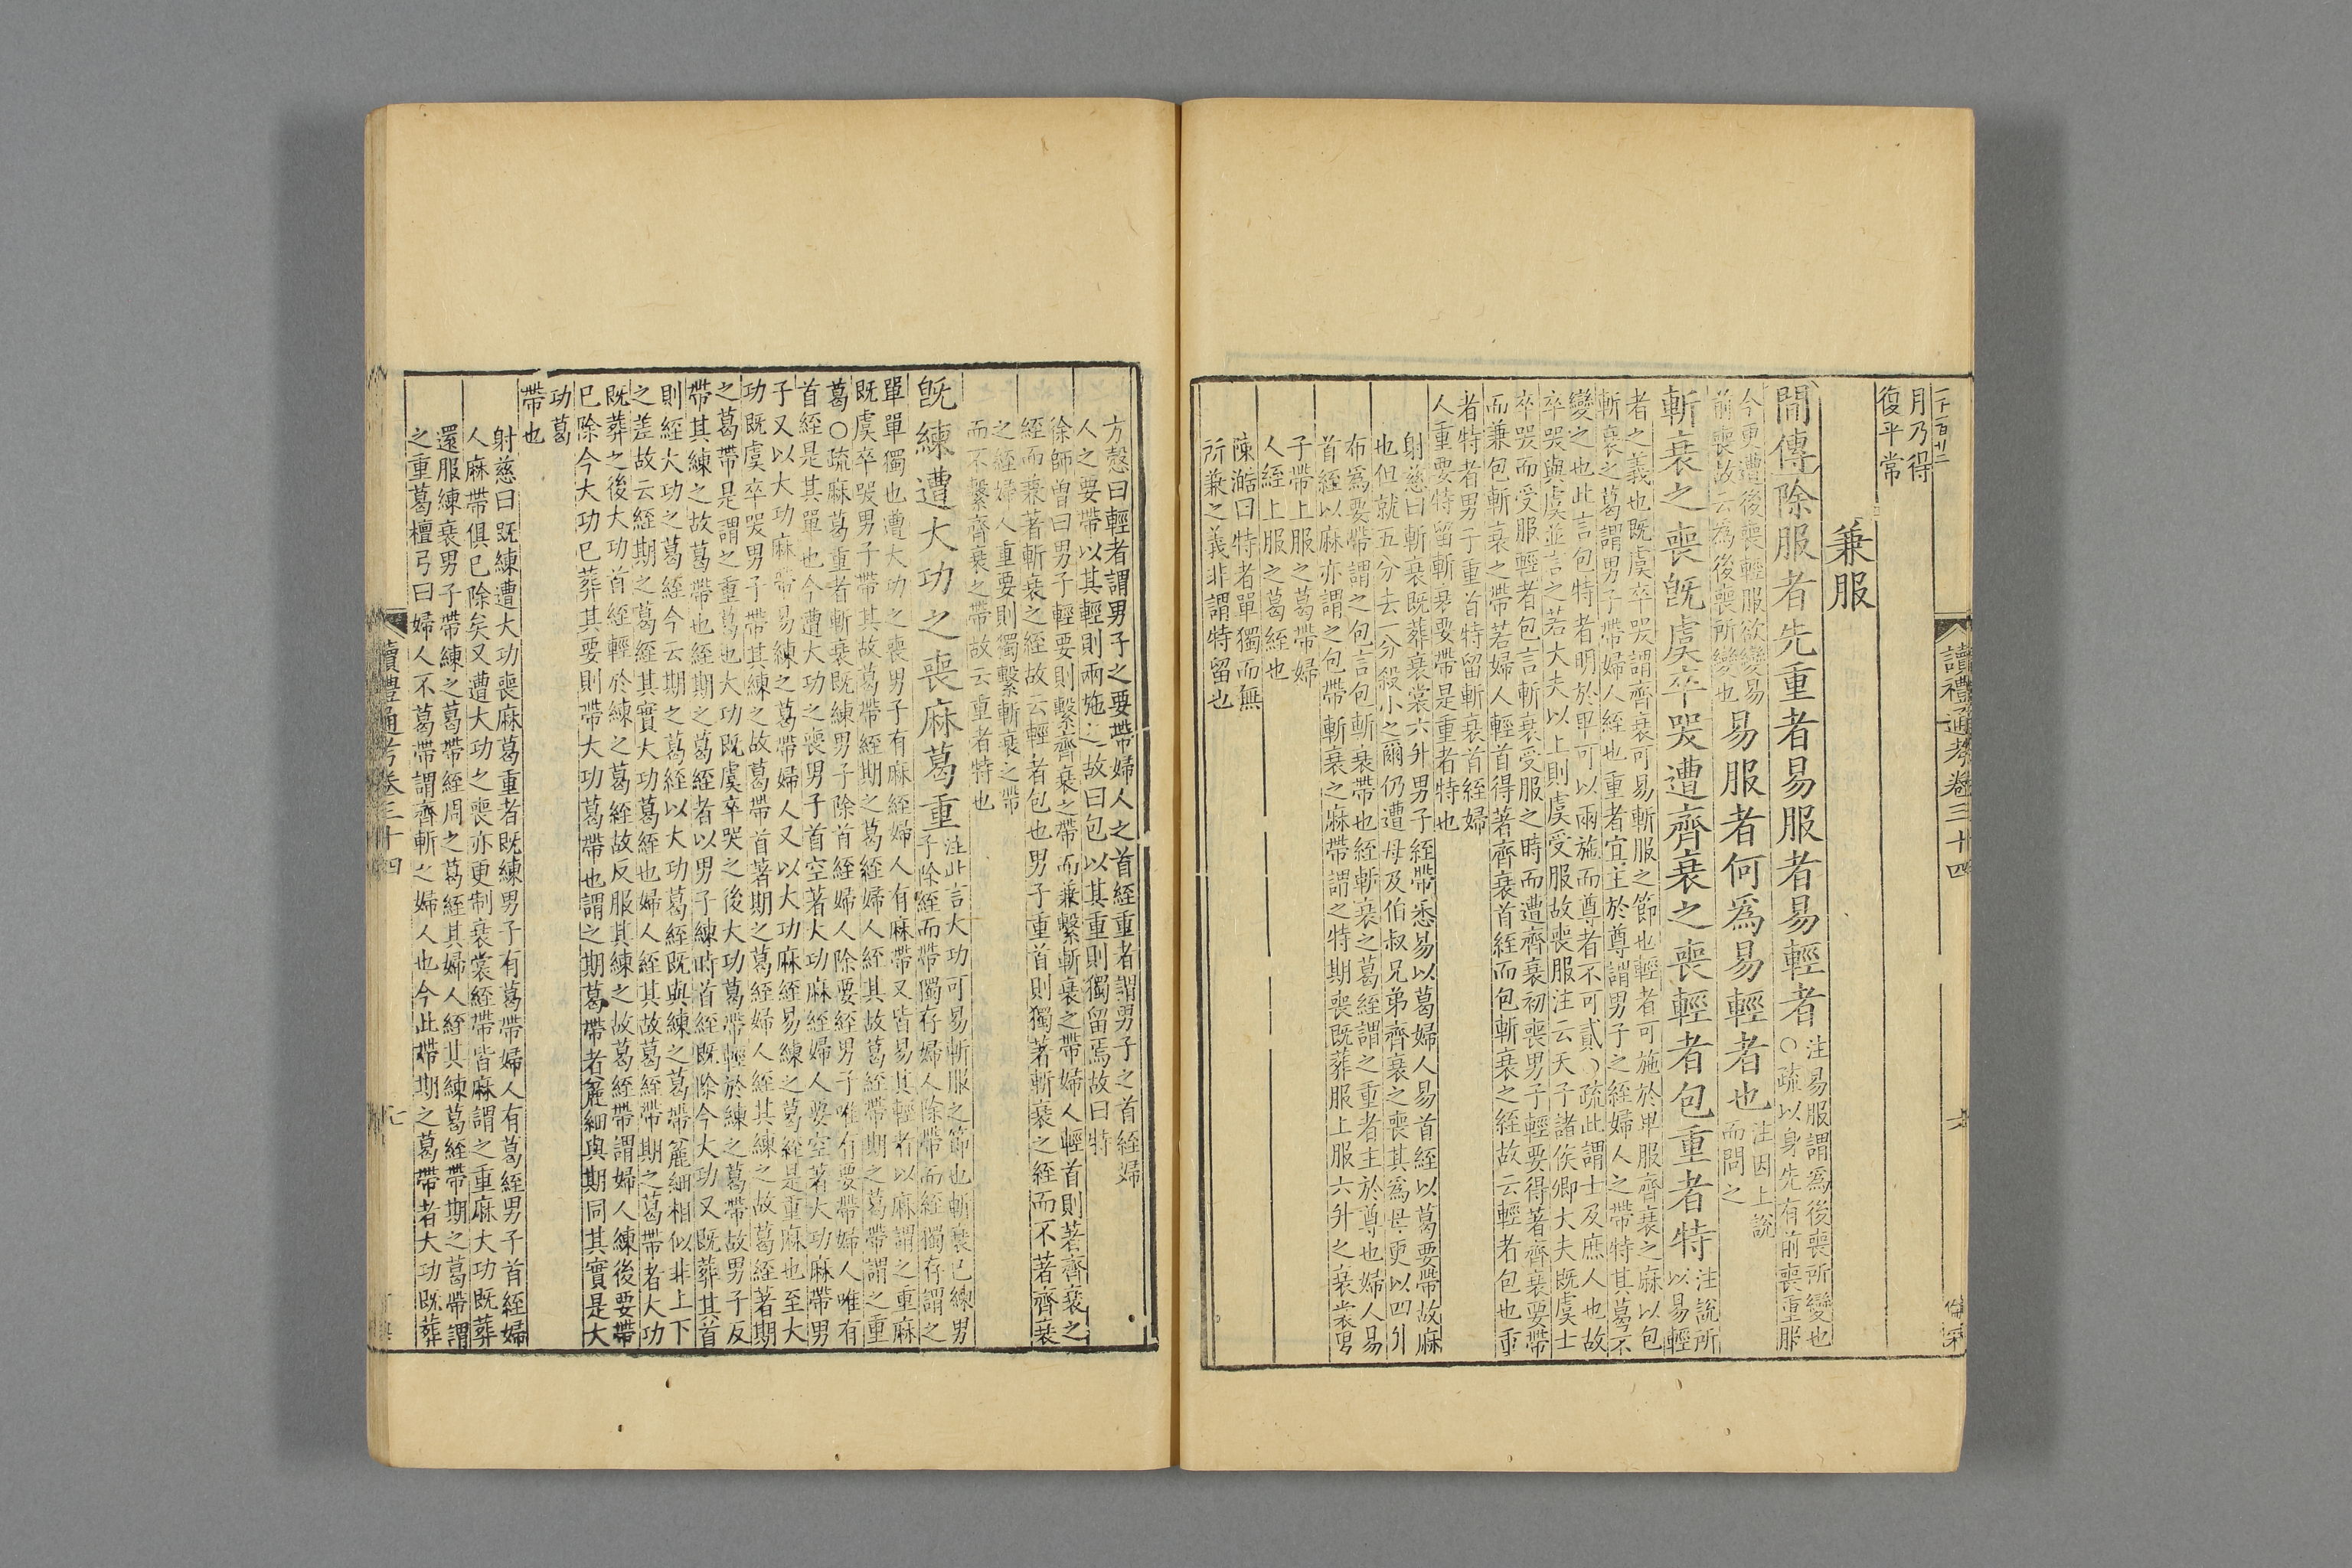 月乃得
復平常
兼服
間傳除服者先重者易服者易輕者
注易服謂爲後喪所變也
○疏以身先有前喪重服
今更遭後喪輕服欲變易
前喪故云為後喪所變也
易服者何爲易輕者也
注因上說
而問之
斬衰之喪旣虞卒哭遭齊衰之喪輕者包重者特
注說所
以易輕
者之義也旣虞卒哭謂齊衰可易斬服之節也輕者可施於卑服齊衰之麻以包
斬衰之葛謂男子帶婦人絰也重者宜主於尊謂男子之絰婦人之帶特其葛不
變之也此言包特者明於卑可以兩施而尊者不可貳○疏此謂士及庶人也故
卒哭與虞並言之若大夫以上則虞受服故喪服注云天子諸侯卿大夫既虞士
卒哭而受服輕者包言斬衰受服之時而遭齊衰初喪男子輕要得著齊衰要帶
而兼包斬衰之帶若婦人輕首得著齊衰首絰而包斬衰之絰故云輕者包也重
者特者男子重首特留斬衰首絰婦
人重要特留斬衰要帶是重者特也
射慈曰斬衰既葬衰裳六升男子絰帶悉易以葛婦人易首絰以葛要帶故麻
也但就五分去一分殺小之爾仍遭母及伯叔兄弟齊衰之喪其爲母更以四升
布爲要帶謂之包言包斬衰帶也絰斬衰之葛絰謂之重者主於尊也婦人易
首絰以麻亦謂之包帶斬衰之麻帶謂之特期喪既葬服上服六升之衰裳男
子帶上服之葛帶婦
人絰上服之葛絰也
陳澔曰特者單獨而無
所兼之義非謂特留也
讀禮通考卷三十四
方慤曰輕者謂男子之要帶婦人之首絰重者謂男子之首絰婦
人之要帶以其輕則兩施之故曰包以其重則獨留焉故曰特
徐師曾曰男子輕要則繫齊衰之帶而兼繫斬衰之帶婦人輕首則著齊衰之
絰而兼著斬衰之絰故云輕者包也男子重首則獨著斬衰之絰而不著齊衰
之絰婦人重要則獨繫斬衰之帶
而不繫齊衰之帶故云重者特也
旣練遭大功之喪麻葛重
注此言大功可易斬服之節也斬衰已練男
子除絰而帶獨存婦人除帶而絰獨存謂之
單單獨也遭大功之喪男子有麻絰婦人有麻帶又皆易其輕者以麻謂之重麻
既虞卒哭男子帶其故葛帶絰期之葛絰婦人絰其故葛絰帶期之葛帶謂之重
葛○疏麻葛重者斬衰既練男子除首絰婦人除要絰男子唯有要帶婦人唯有
首絰是其單也今遭大功之喪男子首空著大功麻絰婦人要空著大功麻帶男
子又以大功麻帶易練之葛帶婦人又以大功麻絰易練之葛絰是重麻也至大
功既虞卒哭男子帶其練之故葛帶首著期之葛絰婦人絰其練之故葛絰著期
之葛帶是謂之重葛也大功既虞卒哭之後大功葛帶輕於練之葛帶故男子反
帶其練之故葛帶也絰期之葛絰者以男子練時首絰既除今大功又既葬其首
則絰大功之葛絰今云期之葛絰以大功葛絰既與練之葛帶麄細相似非上下
之差故云絰期之葛絰其實大功葛絰也婦人絰其故葛絰帶期之葛帶者大功
既葬之後大功首絰輕於練之葛絰故反服其練之故葛絰帶謂婦人練後要帶
已除今大功已葬其要則帶大功葛帶也謂之期葛帶者麄細與期同其實是大
功葛
帶也
射慈曰既練遭大功喪麻葛重者既練男子有葛帶婦人有葛絰男子首絰婦
人麻帶俱已除矣又遭大功之喪亦更制衰裳絰帶皆麻謂之重麻大功既葬
還服練衰男子帶練之葛帶絰周之葛絰其婦人絰其練葛絰帶期之葛帶謂
之重葛檀弓曰婦人不葛帶謂齊斬之婦人也今此帶期之葛帶者大功既葬
讀禮通考卷三十四